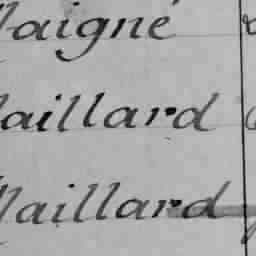 aigné
aillard
aillard